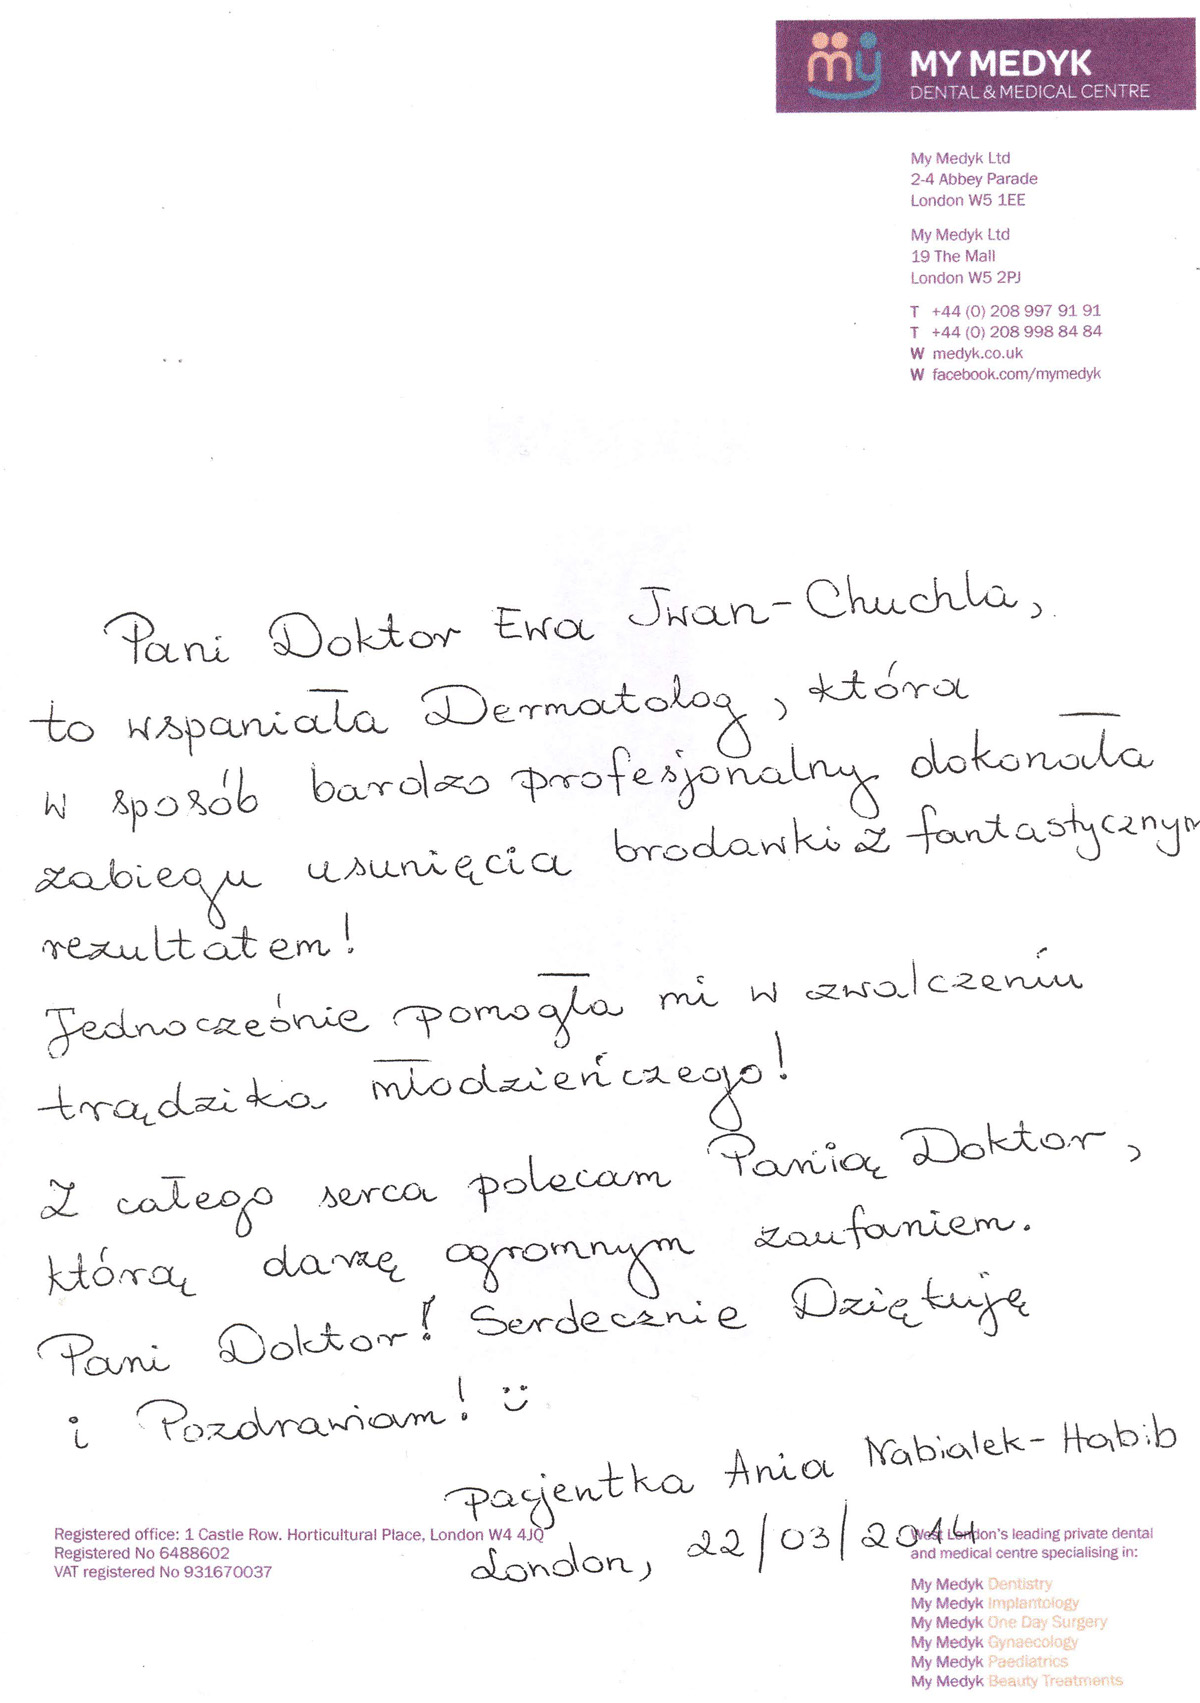 my MY MEDYK
DENTAL & MEDICAL CENTRE
My Medyk Ltd
2-4 Abbey Parade
London W5 1EE
My Medyk Ltd
19 The Mall
London W5 2PJ
T +44 (0) 208 997 91 91
T +44 (0) 208 998 84 84
W medyk.co.uk
W facebook.com/mymedyk
Pani Doktor Ewa Iwan-Chuchla,
to wspaniała Dermatolog, która
w sposób bardzo profesjonalny dokonała
zabiegu usunięcia brodawki z fantastycznym
rezultatem!
Jednocześnie pomogła mi w zwalczeniu
trądzika młodzieńczego!
Z całego serca polecam Panią Doktor,
którą darzę ogromnym zaufaniem.
Pani Doktor! Serdecznie Dziękuję
i Pozdrawiam! :)
pacjentka Ania Nabialek-Habib
London, 22/03/2014
Registered office: 1 Castle Row. Horticultural Place, London W4 4JQ
Registered No 6488602
VAT registered No 931670037
West London's leading private dental
and medical centre specialising in:
My Medyk Dentistry
My Medyk Implantology
My Medyk One Day Surgery
My Medyk Gynaecology
My Medyk Paediatrics
My Medyk Beauty Treatments